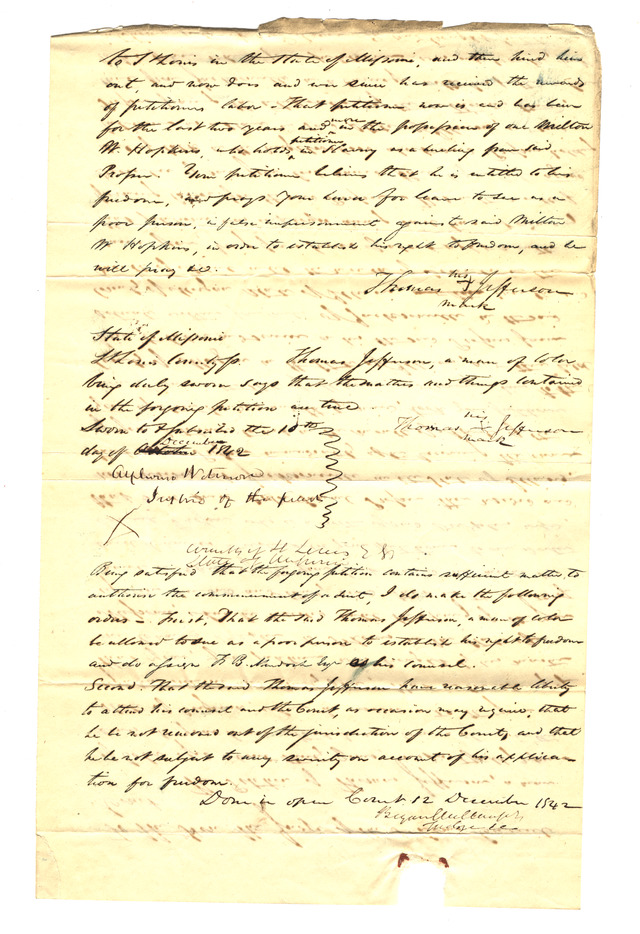 to St Louis in the State of Missouri, and then hired him
out, and now does and ever since has received the rewards
of petitioners labor - that petitioner now is and has been
for the last two years and more in the possession of one Milton
W Hopkins, who holds petitioner in Slavery as a hireling from said
Your petitioner believes that he is entitled to his
freedom, and prays your honor for leave to sue as a
poor person, in false imprisonment against said Milton
W Hopkins, in order to establish his right to freedom, and he
will pray &c.
Thomas his X Jefferson
mark
State of Missouri
St Louis County ss. Thomas Jefferson, a man of color
being duly sworn says that the matters and things contained
in the forgoing petition are true
Sworn to & subscribed the 10th
Thomas his X Jefferson
mark
day of October December 1842
Alphonso Wetmore
Justice of the peace
County of St Louis } ss
State of Missouri
Being satisfied that the forgoing petition contains sufficient matter to
authorise the commencement of a suit, I do make the following
orders - First, That the said Thomas Jefferson, a man of color
be allowed to sue as a poor person to establish his right to freedom
and do assign F. B. Esqr as his counsel.
Second. That the said Thomas Jefferson have reasonable liberty
to attend his counsel and the Court, as occasion may require, that
he be not removed out of the jurisdiction of the County and that
he be not subject to any severity on account of his applica-
tion for freedom.
Done in open Court 12 December 1842
Bryan Mullanphy
Judge &c